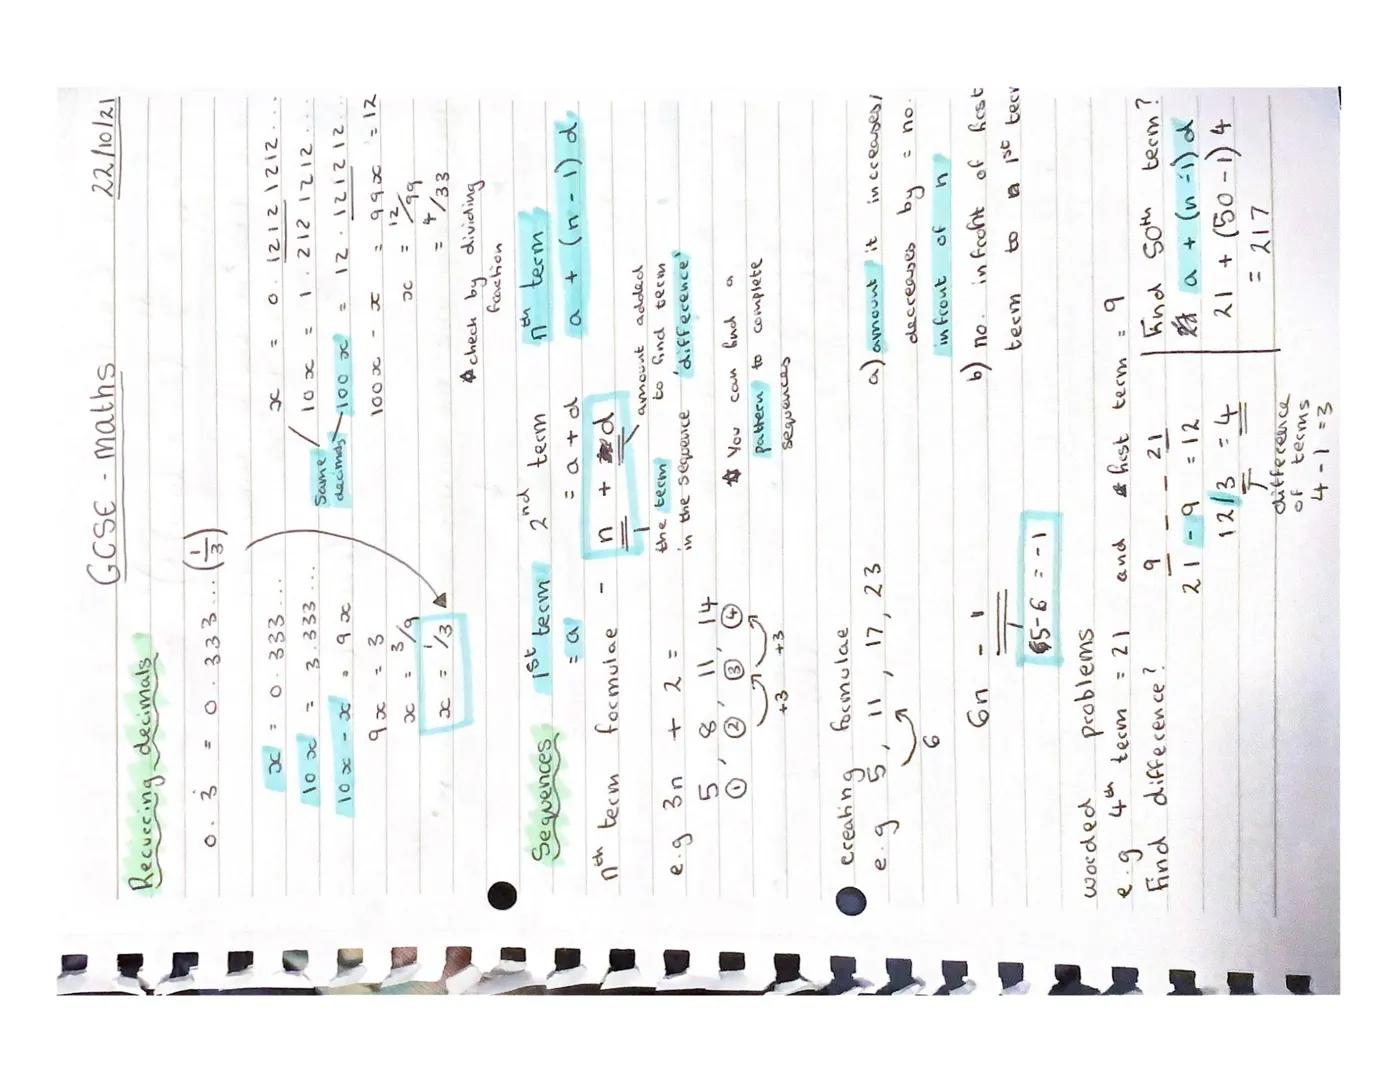 GCSE - maths 22/10/21
Recurring decimals
0.3̇ = 0.333... (1/3)
x = 0.333...
10x = 3.333...
10x - x = 9x
9x = 3
x = 3/9
x = 1/3
x = 0.12121212...
10x = 1.2121212...
100x = 12.121212...
Same
decimals
100x - x = 99x = 12
x = 12/99
= 4/33
* check by dividing
fraction
Sequences 1st term 2nd term nth term
= a = a + d a + (n - 1) d
nth term formulae - n + d
the term
in the sequence
amount added
to find term
'difference'
e.g 3n + 2 =
5, 8, 11, 14
① ② ③ ④
+3 +3
* You can find a
pattern to complete
sequences
creating formulae
e.g 5, 11, 17, 23
6
a) amount it increases/
decreases by = no.
infront of n
6n - 1
5-6 = -1
b) no. infront of first
term to 1st term
worded problems
e.g 4th term = 21 and first term = 9
Find difference?
9 _ _ 21
21 - 9 = 12
12/3 = 4
difference
of terms
4-1=3
Find 50th term?
a + (n-1)d
21 + (50-1)4
= 217